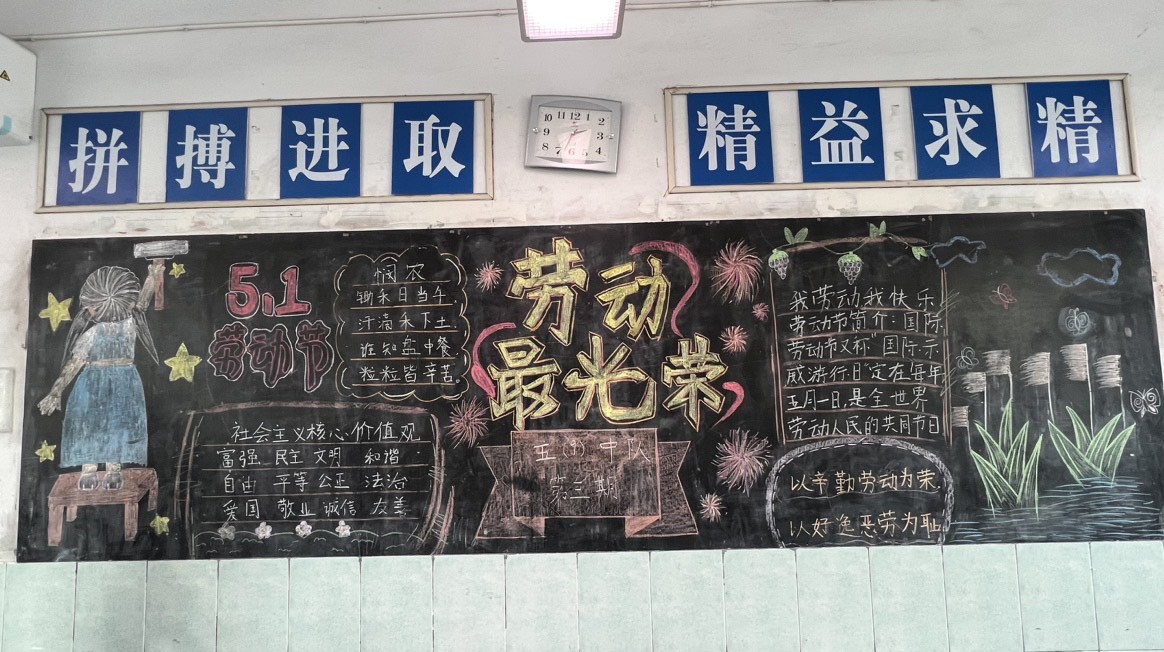 拼搏进取
精益求精
10 11 12 1 2
9 3
8 7 6 5 4
5.1
劳动节
悯农
锄禾日当午
汗滴禾下土
谁知盘中餐
粒粒皆辛苦。
社会主义核心价值观
富强 民主 文明 和谐
自由 平等 公正 法治
爱国 敬业 诚信 友善
劳动
最光荣
中队
第三期
我劳动我快乐
劳动节简介:国际
劳动节又称"国际示
威游行日"定在每年
五月一日,是全世界
劳动人民的共同节日
以辛勤劳动为荣
以好逸恶劳为耻